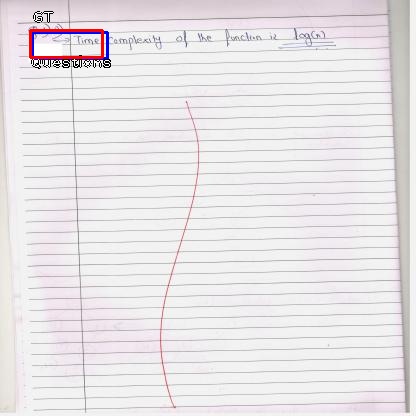 GT
→ Time Complexity of the function is log(n)
Questions